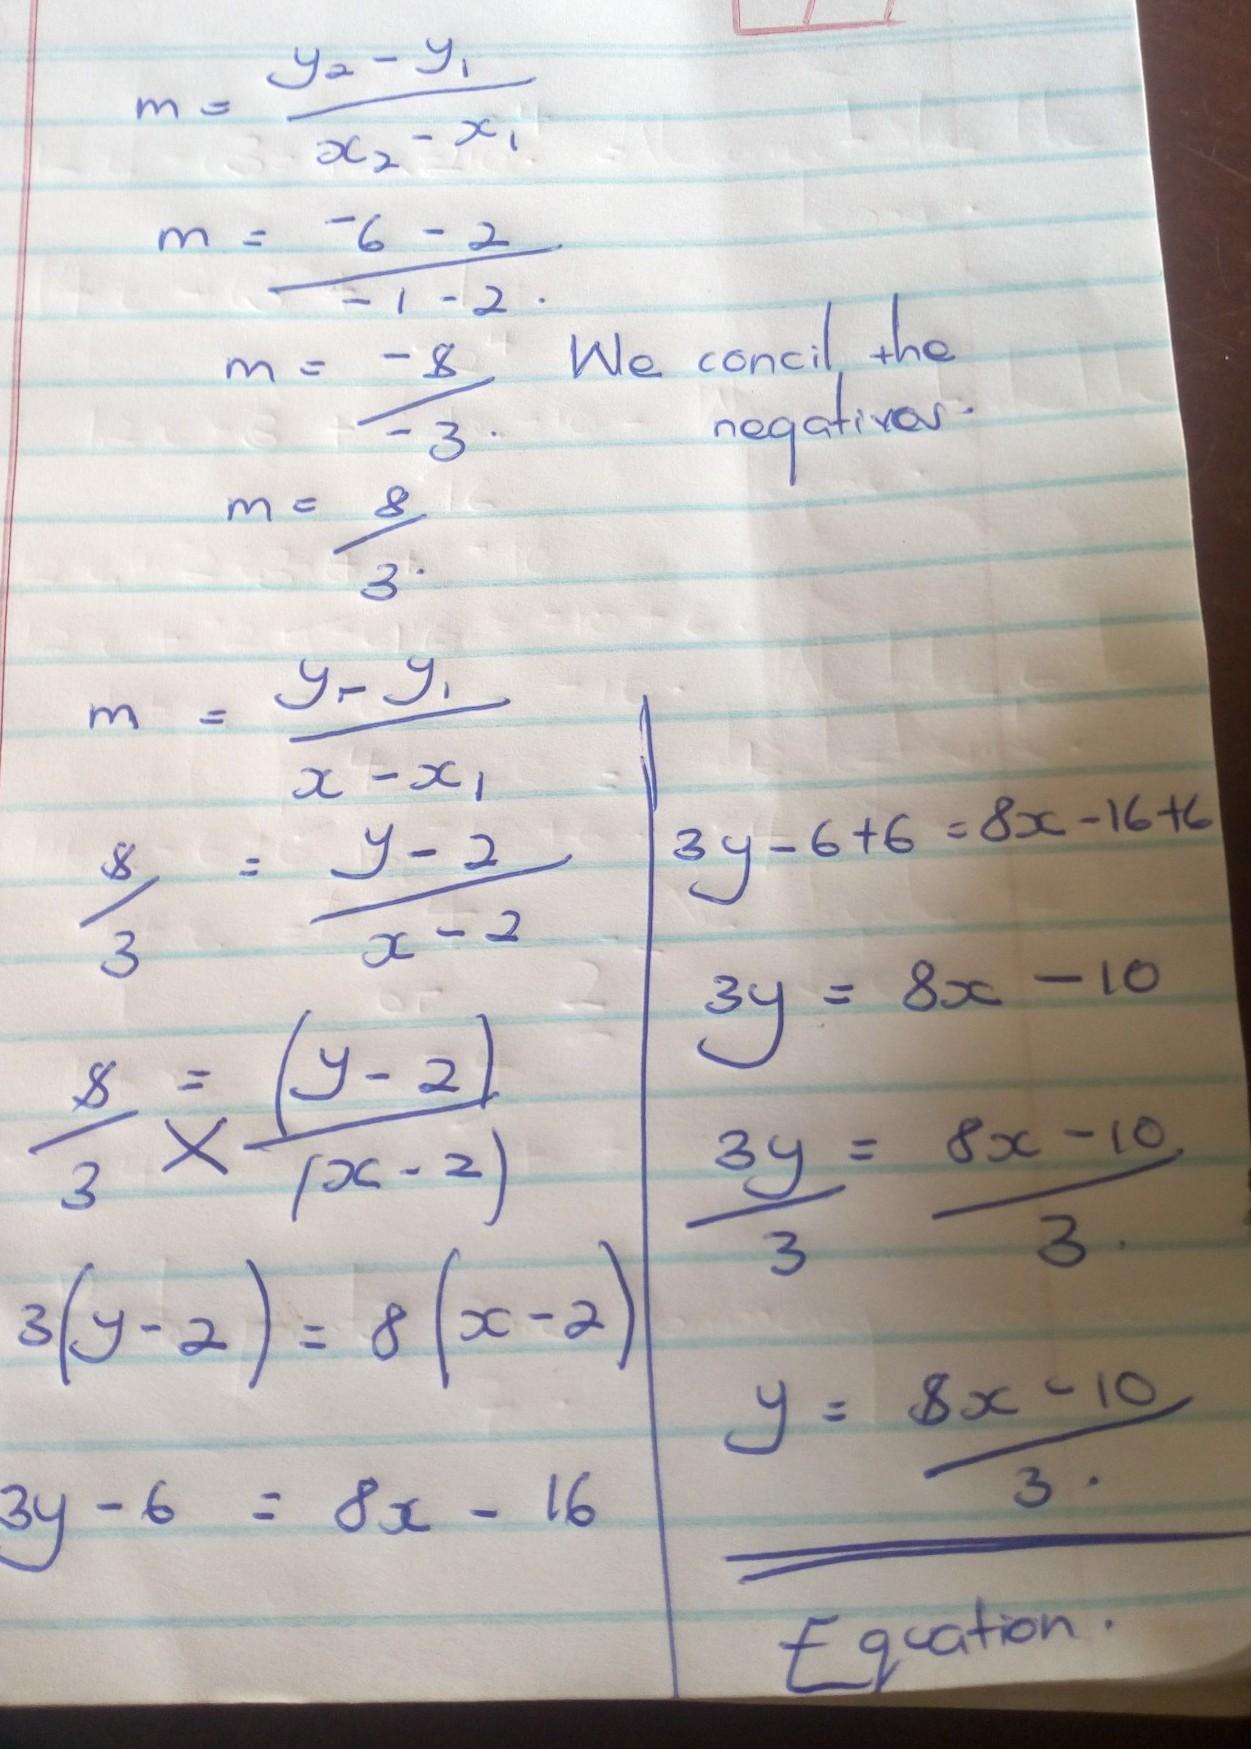 m = y₂ - y₁ / x₂ - x₁
m = -6 - 2 / -1 - 2.
m = -8 / -3. We concil the
negatives.
m = 8 / 3.
m = y - y₁ / x - x₁
8 / 3 = y - 2 / x - 2
8 / 3 = (y - 2) / (x - 2)
3(y - 2) = 8(x - 2)
3y - 6 = 8x - 16
3y - 6 + 6 = 8x - 16 + 6
3y = 8x - 10
3y / 3 = 8x - 10 / 3.
y = 8x - 10 / 3.
Equation.